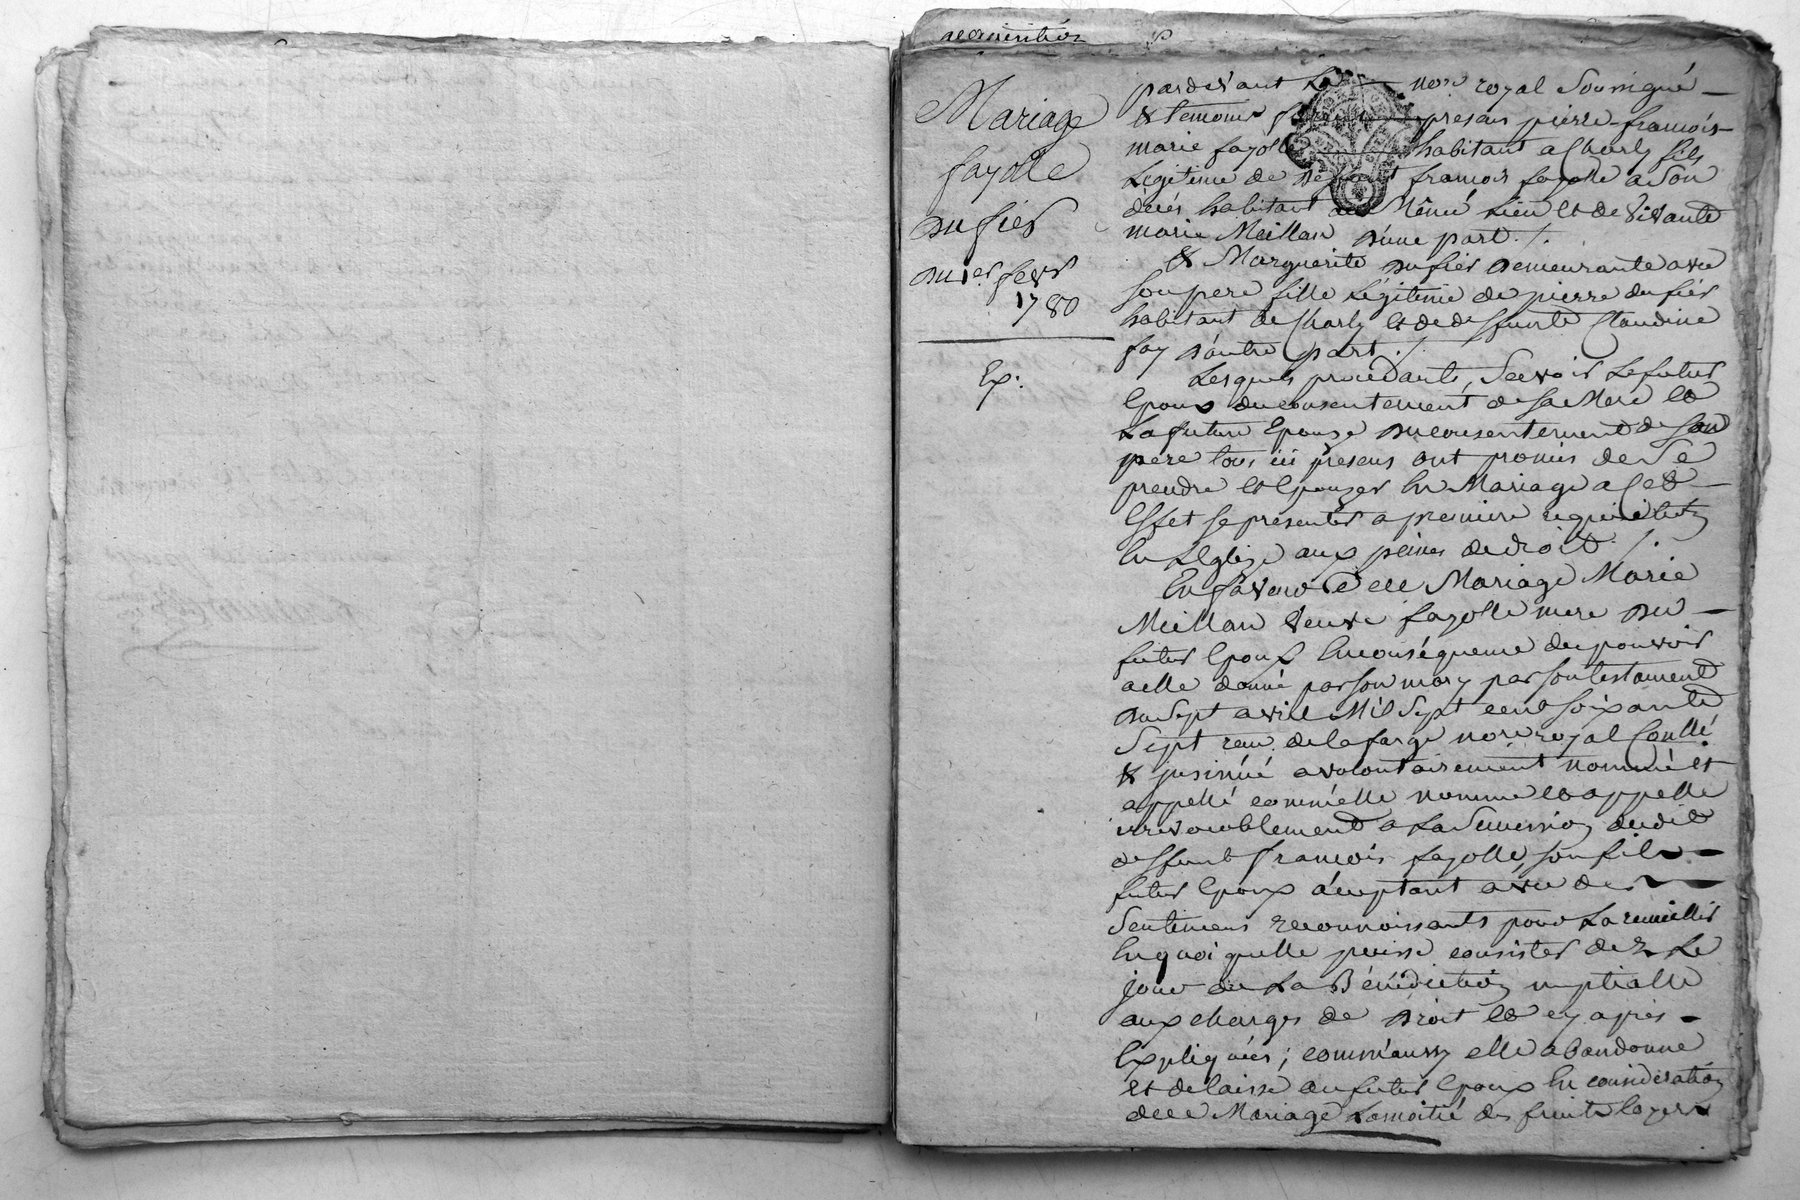 acquisition
Mariage
fayolle
Dufier
Du 1er fevr
1780
Ex.
pardevant Le nore royal Soussigné
& temoins presens pierre francois
marie fayolle habitant a Charly fils
Légitime de deffunt francois fayolle a Son
décés habitant au Même Lieu et de vivante
marie Meillan D'une part ./.
& Marguerite Dufier Demeurante avec
Son pere fille Légitime de pierre dufier
habitant de Charly et de deffunte Claudine
fay D'autre part ./.
Lesquels procedants, Scavoir Le futur
Epoux du consentement de Sa Mere et
La future Epouze Du consentement de Son
pere tous ici presens ont promis de Se
prendre et Epouzer En Mariage a Cet
Effet Se presenter a premiere requisition
En L'Eglize aux peines de droit ./.
En faveur de ce Mariage Marie
Meillan Veuve fayolle mere Du
futur Epoux En conséquence du pouvoir
a elle donné par Son mary par Son testament
Du Sept avril Mil Sept cent Soixante
Sept recu delafarge nore royal Conllé
& jnsinué a volontairement nommé et
appellé comm'elle nomme et appelle
irrevocablement a La Succession dudit
deffunt francois fayolle Son fils
futur Epoux acceptant avec des
Sentimens reconnoissants pour La recueillir
En quoi qu'elle puisse consister dez Le
jour de La Bénédiction nuptialle
aux charges de Droit et cy apres
Expliquées ; comm'aussy elle abandonne
et delaisse au futur Epoux En consideration
de ce Mariage La moitié des fruits loyers